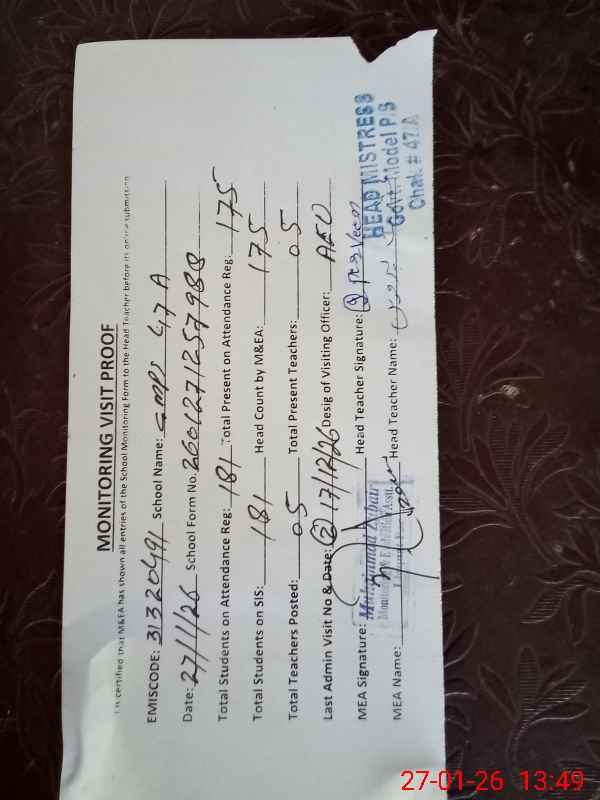 MONITORING VISIT PROOF
It is certified that M&EA has shown all entries of the School Monitoring Form to the Head Teacher before its online submission
EMISCODE: 31320491 School Name: GMPS 47 A
Date: 27/1/26 School Form No. 2601271257988
Total Students on Attendance Reg: 181 Total Present on Attendance Reg: 175
Total Students on SIS: 181 Head Count by M&EA: 175
Total Teachers Posted: 05 Total Present Teachers: 05
Last Admin Visit No & Date: (2) 17/12/26 Desig of Visiting Officer: AEO
MEA Signature: Head Teacher Signature:
Muhammad
MEA Name: Head Teacher Name:
HEAD MISTRESS
Govt. Model P.S
Chak # 47 A
27-01-26 13:49